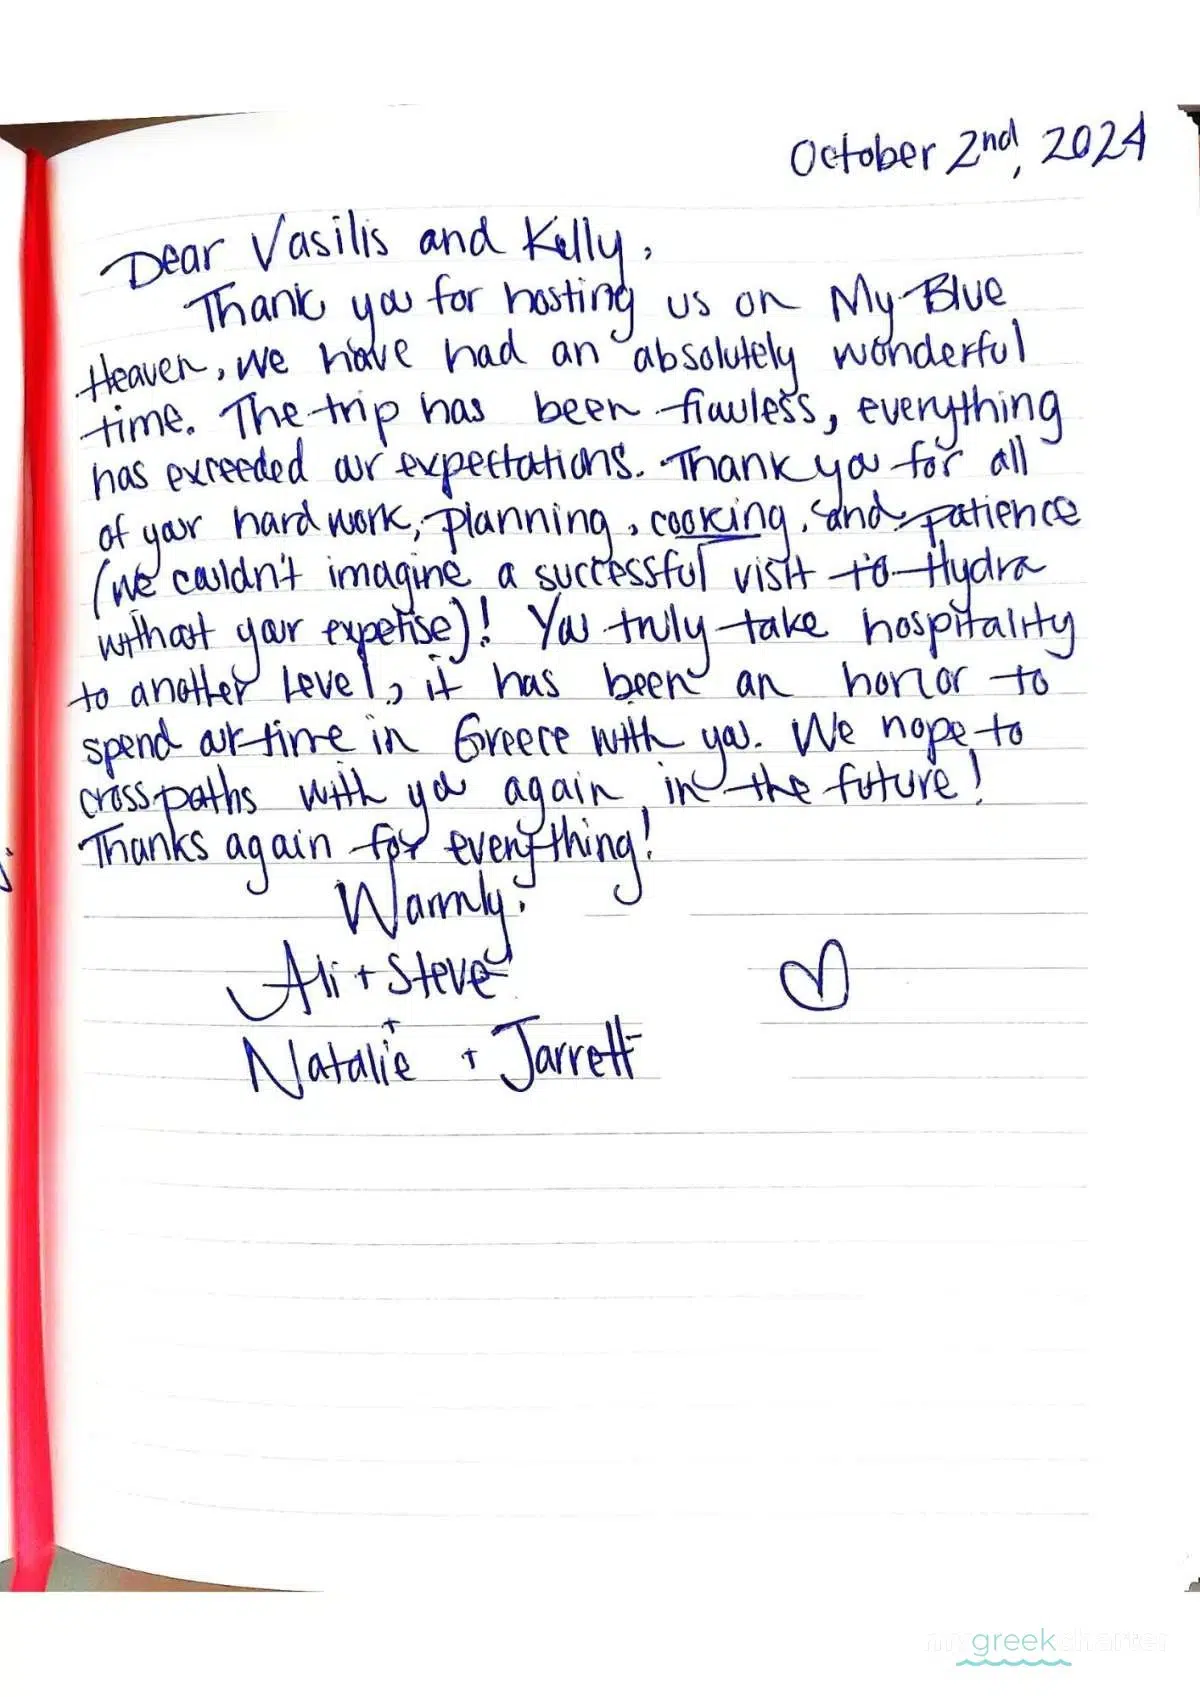 October 2nd, 2024
Dear Vasilis and Kelly,
Thank you for hosting us on My Blue
Heaven, we have had an absolutely wonderful
time. The trip has been flawless, everything
has exceeded our expectations. Thank you for all
of your hard work, planning, cooking, and patience
(we couldn't imagine a successful visit to Hydra
without your expertise)! You truly take hospitality
to another level, it has been an honor to
spend our time in Greece with you. We hope to
cross paths with you again in the future!
Thanks again for everything!
Warmly,
Ali + Steve
+
Natalie + Jarrett
my greek charter